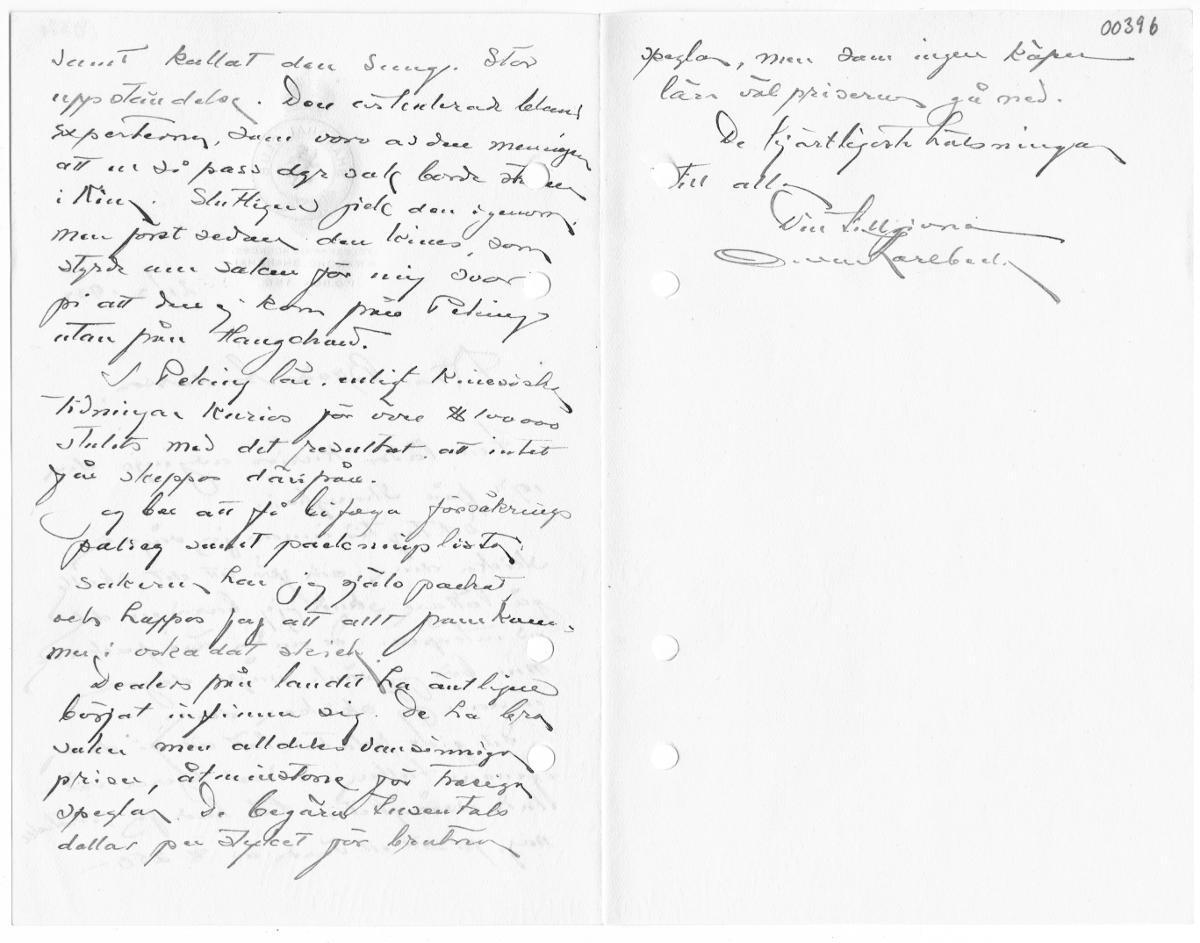 samt kallat den Sung. Stor
uppståndelse. Den cirkulerade bland
experterna, som voro av den meningen
att en så pass dyr sak borde stanna
i Kina. Slutligen gick den igenom
men först sedan den kines, som
styrde om saken för mig svor
på att den ej kom från Peking
utan från Hangchow.
I Peking lär enligt kinesiska
tidningar kurios för över $100000
stulits med det resultat att intet
får skeppas därifrån.
Jag ber att få bifoga försäkrings
polisen samt packningslista.
Sakerna har jag själv packat,
och hoppas jag att allt framkom-
mer i oskadat skick.
Dealers från landet ha äntligen
börjat infinna sig. De ha bra
saker men alldeles vansinniga
priser, åtminstone för trasiga
speglar. De begära tusentals
dollar per stycket för brutna
00396
speglar, men som ingen köper
lära väl priserna gå ned.
De hjärtligaste hälsningar
till alla
Din tillgivne
Orvar Karlbeck